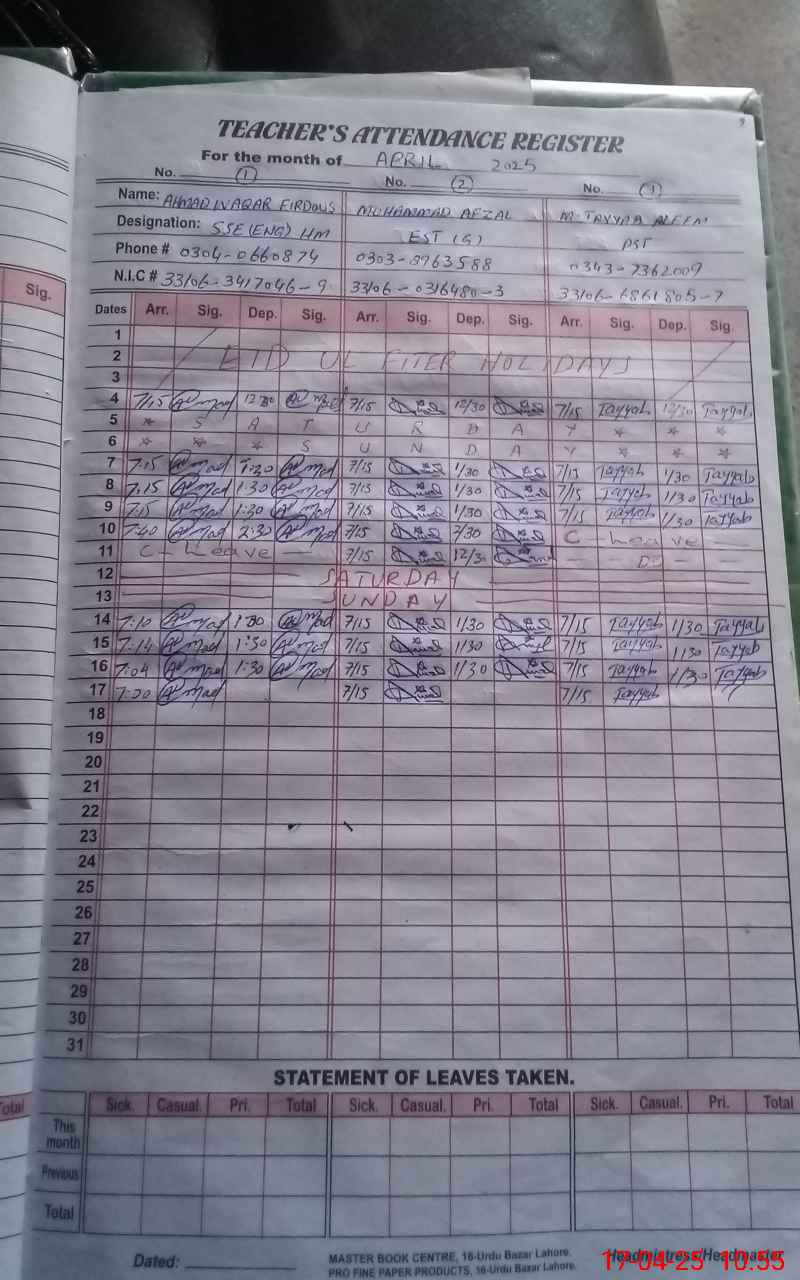 TEACHER'S ATTENDANCE REGISTER
For the month of APRIL 2025
No. 1 No. 2 No.
Name: AHMAD WAQAR FIRDOUS MUHAMMAD AFZAL M. TAYYAB ALEEM
Designation: SSE(ENG) HM EST (G) PST
Phone # 0304-0660874 0303-3963588 0343-7362009
N.I.C # 33106-3417046-9 33106-0316480-3 33106-6861805-7
Sig.
Dates Arr. Sig. Dep. Sig. Arr. Sig. Dep. Sig. Arr. Sig. Dep. Sig.
1
2 EID UL FITER HOLIDAYS
3
4 7/15 12/30 7/15 Tayyab 12/30 Tayyab
5 * S A T U R D A Y * * *
6 * * * S U N D A Y * * *
7 7:15 1:30 7/15 1/30 7/15 Tayyab 1/30 Tayyab
8 7:15 1:30 7/15 1/30 7/15 Tayyab 1/30 Tayyab
9 7:15 1:30 7/15 1/30 7/15 Tayyab 1/30 Tayyab
10 7:40 2:30 7/15 C-Leave
11 C-Leave 7/15 12/30 Do
12 SATURDAY
13 SUNDAY
14 7:10 1:30 7/15 1/30 7/15 Tayyab 1/30 Tayyab
15 7:14 1:30 7/15 1/30 7/15 Tayyab 1/30 Tayyab
16 7:04 1:30 7/15 1/30 7/15 Tayyab 1/30 Tayyab
17 7/15 7/15 Tayyab
18
19
20
21
22
23
24
25
26
27
28
29
30
31
STATEMENT OF LEAVES TAKEN.
Total Sick. Casual. Pri. Total Sick. Casual. Pri. Total Sick. Casual. Pri. Total
This month
Previous
Total
Dated:
MASTER BOOK CENTRE, 16-Urdu Bazar Lahore.
PRO FINE PAPER PRODUCTS, 16-Urdu Bazar Lahore.
Headmistress/Headmaster
17-04-25 10:55